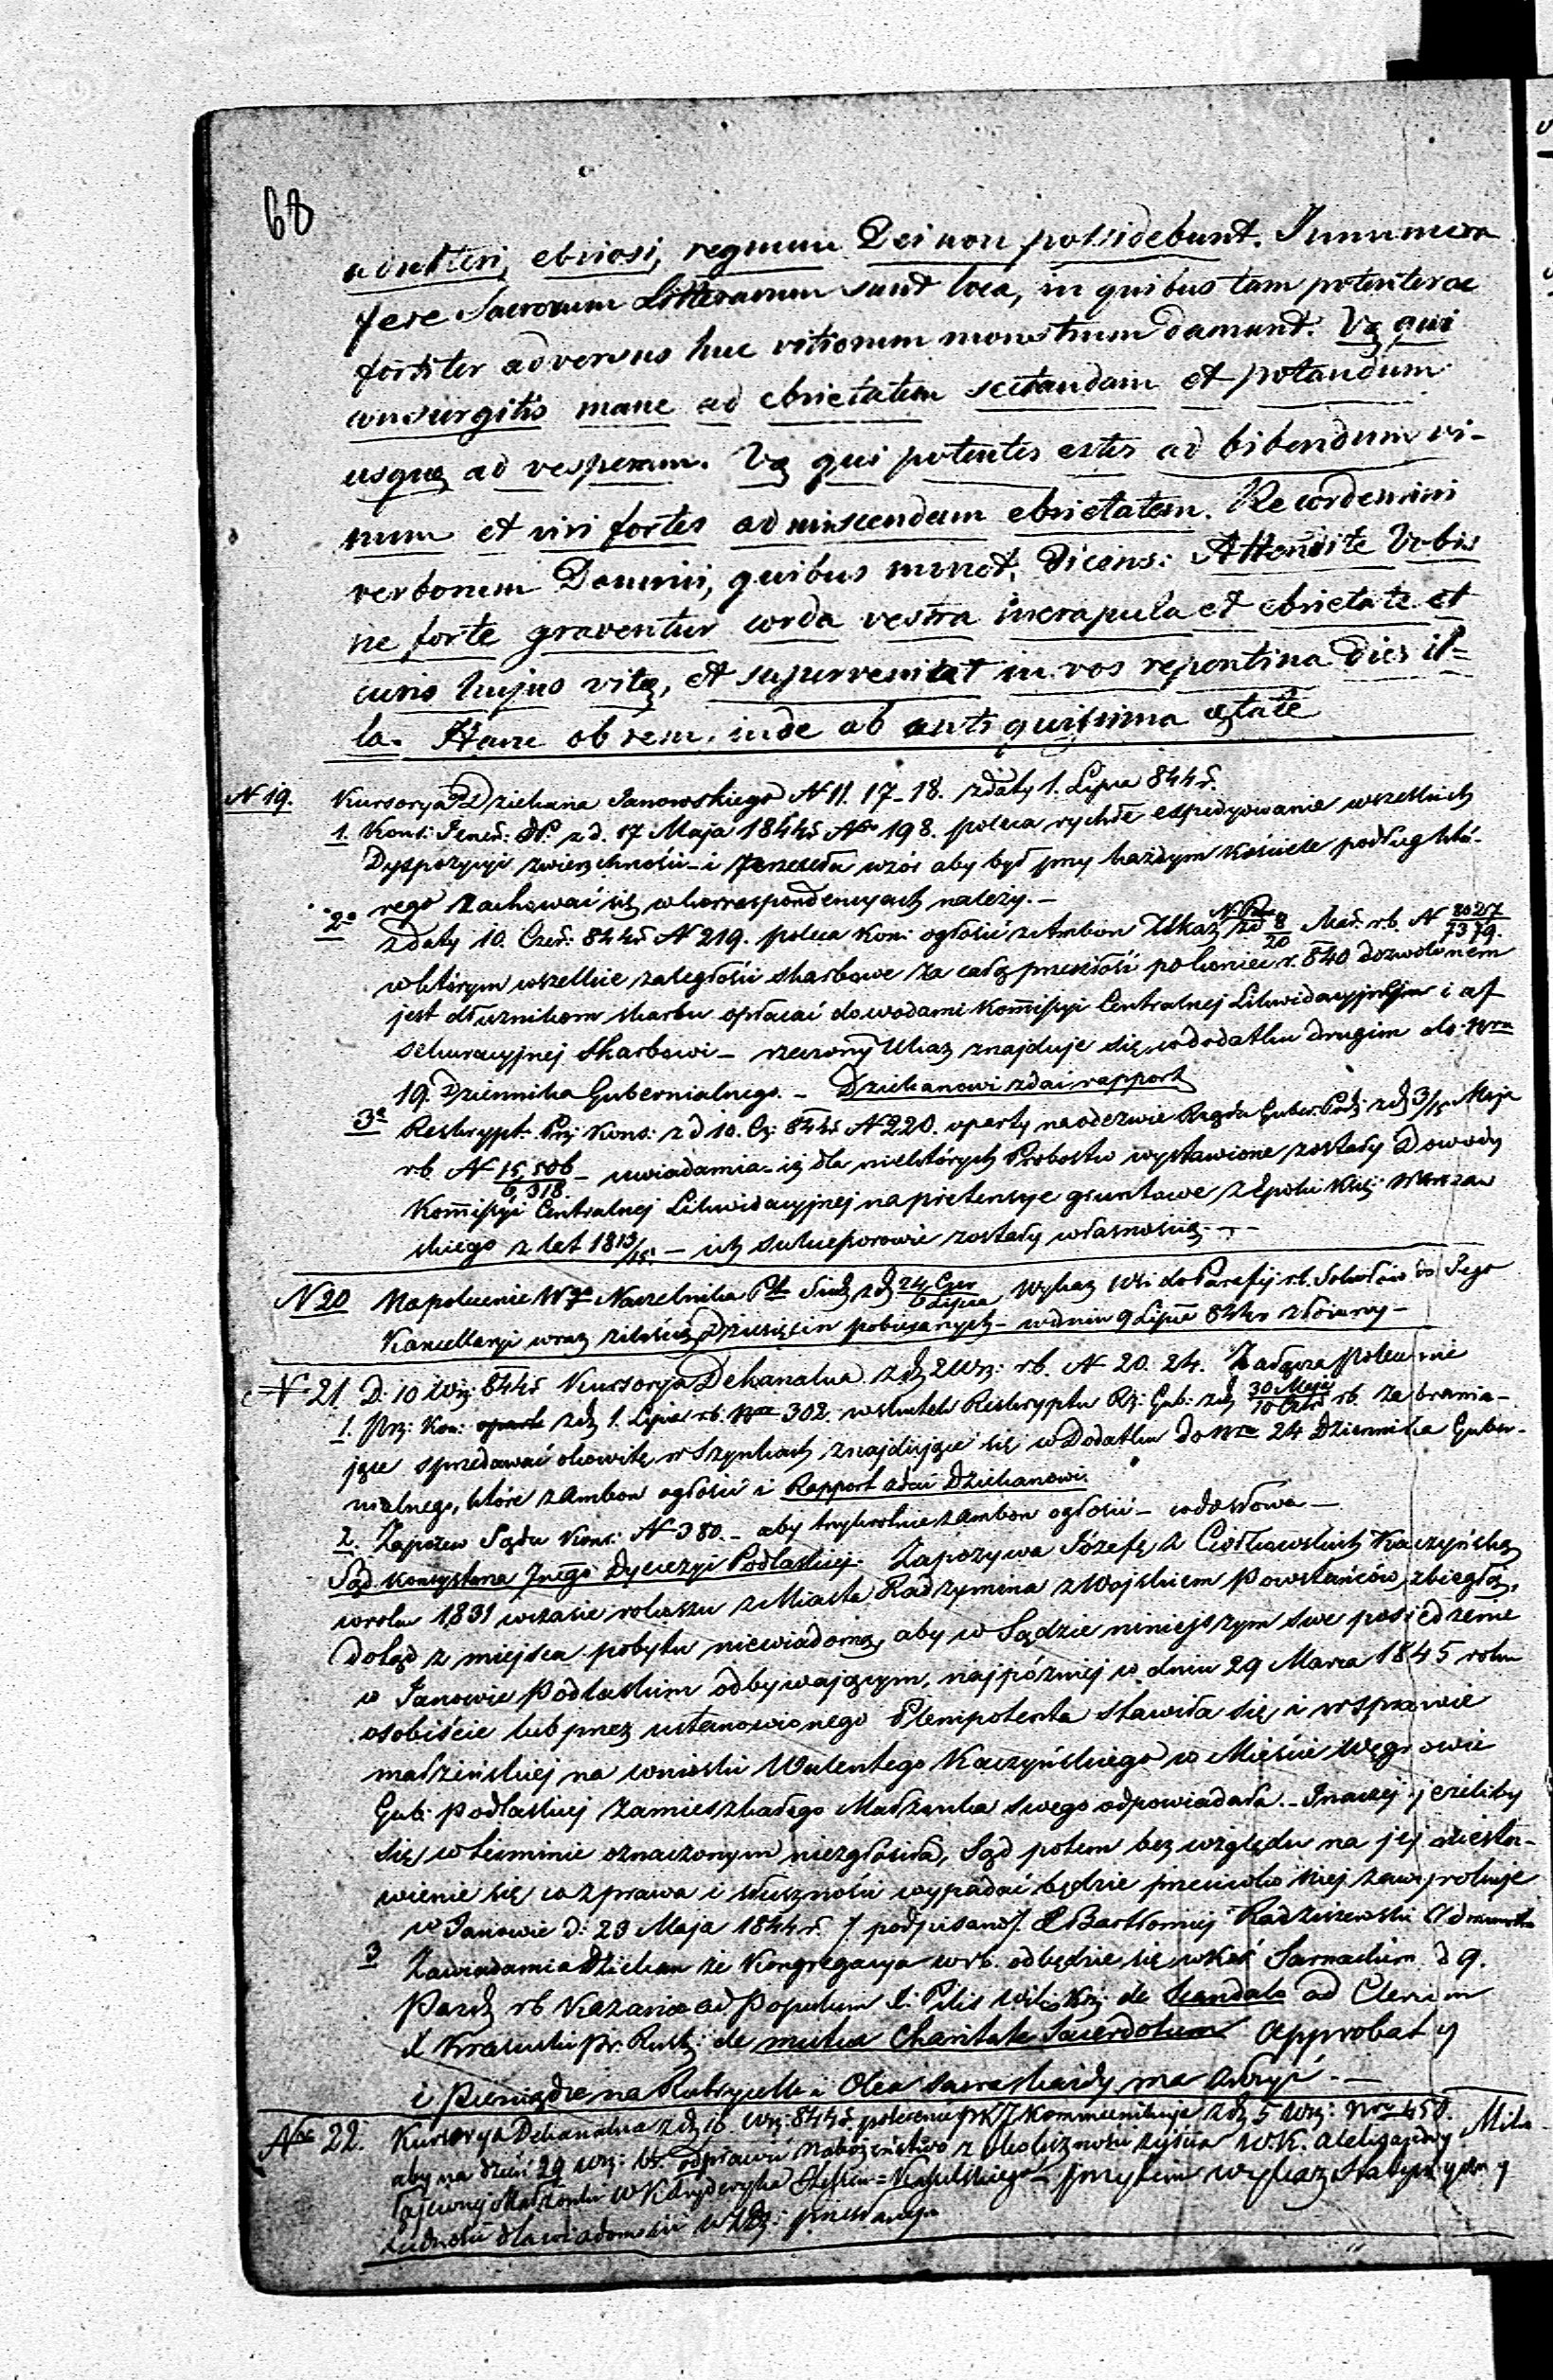 68
adulteri, ebriosi, regnum Dei non possidebunt. Innumera
fere Sacrorum Litterarum sunt loca, in quibus tam potenter ac
fortiter adversus huc vitiorum monstrum damant. Vę qui
consurgitis mane ad ebrietatem sectandam et potandum
usquę ad vesperam. Vę qui potentes estis ad bibendum vi-
num et viri fortes ad miscendam ebrietatem. Recordemini
verborum Domini, quibus monet, dicens: Attendite Vobis
ne forte graventur corda vestra in crapula et ebrietate et
curis hujus vitę, et superveniat in vos repentina dies il=
la. Hanc ob rem, inde ab antiquissima ętate
N 19. Kursorya Dziekana Janowskiego N 11. 17-18. z daty 1. Lipca 844 r.
1. Kons: Jener: z d. 17 Maja 1844 r No 198. poleca rychłe expedyowanie wszelkich
Dyspozycyi zwierzchności - i przeseła wzór aby był przy każdym kościele podług któ-
rego zachować się w korrespondencyach należy. -
2o z daty 10. Czer: 844 r N 219. poleca Kons: ogłosić z Ambon Ukaz N. Pana z d 8/20 Mar. r.b. N 2027/7379.
w którym wszelkie zaległości skarbowe za całą przeszłość po koniec r. 840 dozwolonem
jest dłużnikom skarbu opłacać dowodami Kommissyi Centralnej Likwidacyjnej i as
sekuracyjnej Skarbowi - rzeczony Ukaz znajduje się w dodatku drugim do Nra
19. Dziennika Gubernialnego. - Dziekanowi zdać rapport
3o Reskrypt. Prz. Kons: z d 10. Cz: 844 r N 220. oparty na odezwie Rządu Guber: Podl: z d 3/15 Maja
r b. N 15,506/6,318. - uwiadamia - iż dla niektórych Probostw wystawione zostały Dowody
Kommissyi Centralnej Likwidacyjnej na pretensye gruntowe z Epoki Księ: Warszaw
skiego z lat 1813/15. - ich sukcesorowie zostały własnością. -
N 20 Na polecenie W go Naczelnika Ptu Sied z d 24 Czer/6 Lipca Wykaz Wsi do Parafij rb. Sokołów do Jego
Kancellaryi wraz z ilością Dziesięcin pobieranych - w dniu 9 Lipca 844 r złożony -
N 21 D: 10 Wrz: 844 r Kursorya Dekanalna z d 2 Wrz: rb. N 20. 24. Załącza polecenie
1. Prz: Kon: z d 1. Lipca rb. Nro 302. wskutek Reskryptu Rz: Gub: z d 30 Maja/10 Czer rb. zabrania-
jące sprzedawać okowitę w Szynkach znajdujące się w Dodatku do Nra 24 Dziennika Guber-
nialnego, które z Ambon ogłosić i Rapport zdać Dziekanowi.
2. Zapozew Sądu Kons: N 380. - aby trzykrotnie z ambon ogłosić - co do słowa -
Sąd Konsystorza Jnego Dyecezyi Podlaskiej. Zapozywa Józefę z Ciołkowskich Kaczyńską
w roku 1831 w czasie rokoszu z Miasta Radzymina z Wojskiem Powstańców zbiegłą,
Dotąd z miejsca pobytu niewiadomą, aby w Sądzie niniejszym swe posiedzenie
w Janowie Podlaskim odbywającym, najpóźniej w dniu 29 Marca 1845 roku
osobiście lub przez ustanowionego Plenipotenta stawiła się i w sprawie
małżeńskiej na wniosku Walentego Kaczyńskiego w Mieście Węgrowie
Gub: Podlaskiej zamieszkałego Małżonka swego odpowiadała. - Inaczej jeżeliby
się w terminie oznaczonym nie zgłosiła, Sąd potem bez względu na jej niesta-
wienie się co z prawa i słuszności wypadać będzie przeciwko niej zawyrokuje
w Janowie d: 23 Maja 1844 r. / podpisano /. X Bartłomiej Radziszewski Administr
3 Zawiadamia Dziekan że Kongregacya w rb. odbędzie się w Koś Sarnackim d 9.
Paźdz rb Kazanie ad Populum X: Pilis Wik: Krz: de Scandalo ad Clerum
X Krasuski Pr. Rusk: de mutua Charitate Sacerdotum Approbaty
i Pieniądze na Rubrycelle i Olea sacra każdy ma złożyć. -
Nro 22. Kursorya Dekanalna z d 16. Wrz: 844 r. polecenie PKJ Kommunikuje z d 5 Wrz: Nro 450.
aby na dzień 29 Wrz: br. odprawić Nabożeństwo z okoliczności zejścia W. K. Aleksandry Miko
łajewny Małżonki W K Fryderyka Hessen = Kasselskiego - przytem wykaz Statystyczny
Ludności dla wiadomości Wł Dz: przesłany.